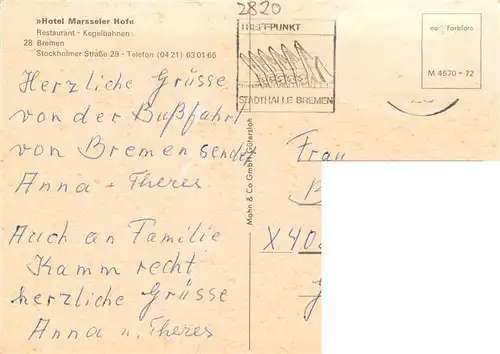 »Hotel Marsseler Hof«
Restaurant · Kegelbahnen
28 Bremen
Stockholmer Straße 29 · Telefon (04 21) 63 01 65
2820
TREFFPUNKT
STADTHALLE BREMEN
nach Farbfoto
M 4570 - 72
Mohn & Co GmbH Gütersloh
Herzliche Grüsse
von der Bußfahrt
von Bremen sendet
Anna + Theres
Auch an Familie
Kamm recht
herzliche Grüsse
Anna u. Theres
Frau
X 40